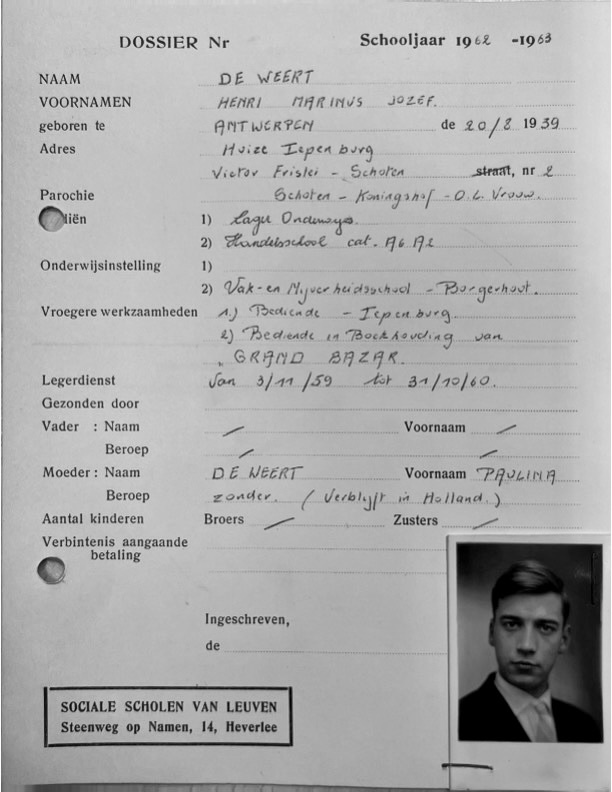 DOSSIER Nr Schooljaar 1962 -1963
NAAM DE WEERT
VOORNAMEN HENRI MARINUS JOZEF.
geboren te ANTWERPEN de 20/8 1939
Adres Huize Iepenburg
Victor Frislei - Schoten straat, nr 2
Parochie Schoten - Koningshof - O.L. Vrouw.
diën 1) Lager Onderwijs.
2) Handelsschool cat. A6 A2
Onderwijsinstelling 1)
2) Vak- en Nijverheidsschool - Borgerhout.
Vroegere werkzaamheden 1.) Bediende - Iepenburg.
2) Bediende in Boekhouding van
GRAND BAZAR.
Legerdienst Van 3/11/59 tot 31/10/60.
Gezonden door
Vader : Naam — Voornaam —
Beroep — —
Moeder : Naam DE WEERT Voornaam PAULINA
Beroep zonder. (Verblijft in Holland.)
Aantal kinderen Broers — Zusters —
Verbintenis aangaande
betaling
Ingeschreven,
de
SOCIALE SCHOLEN VAN LEUVEN
Steenweg op Namen, 14, Heverlee